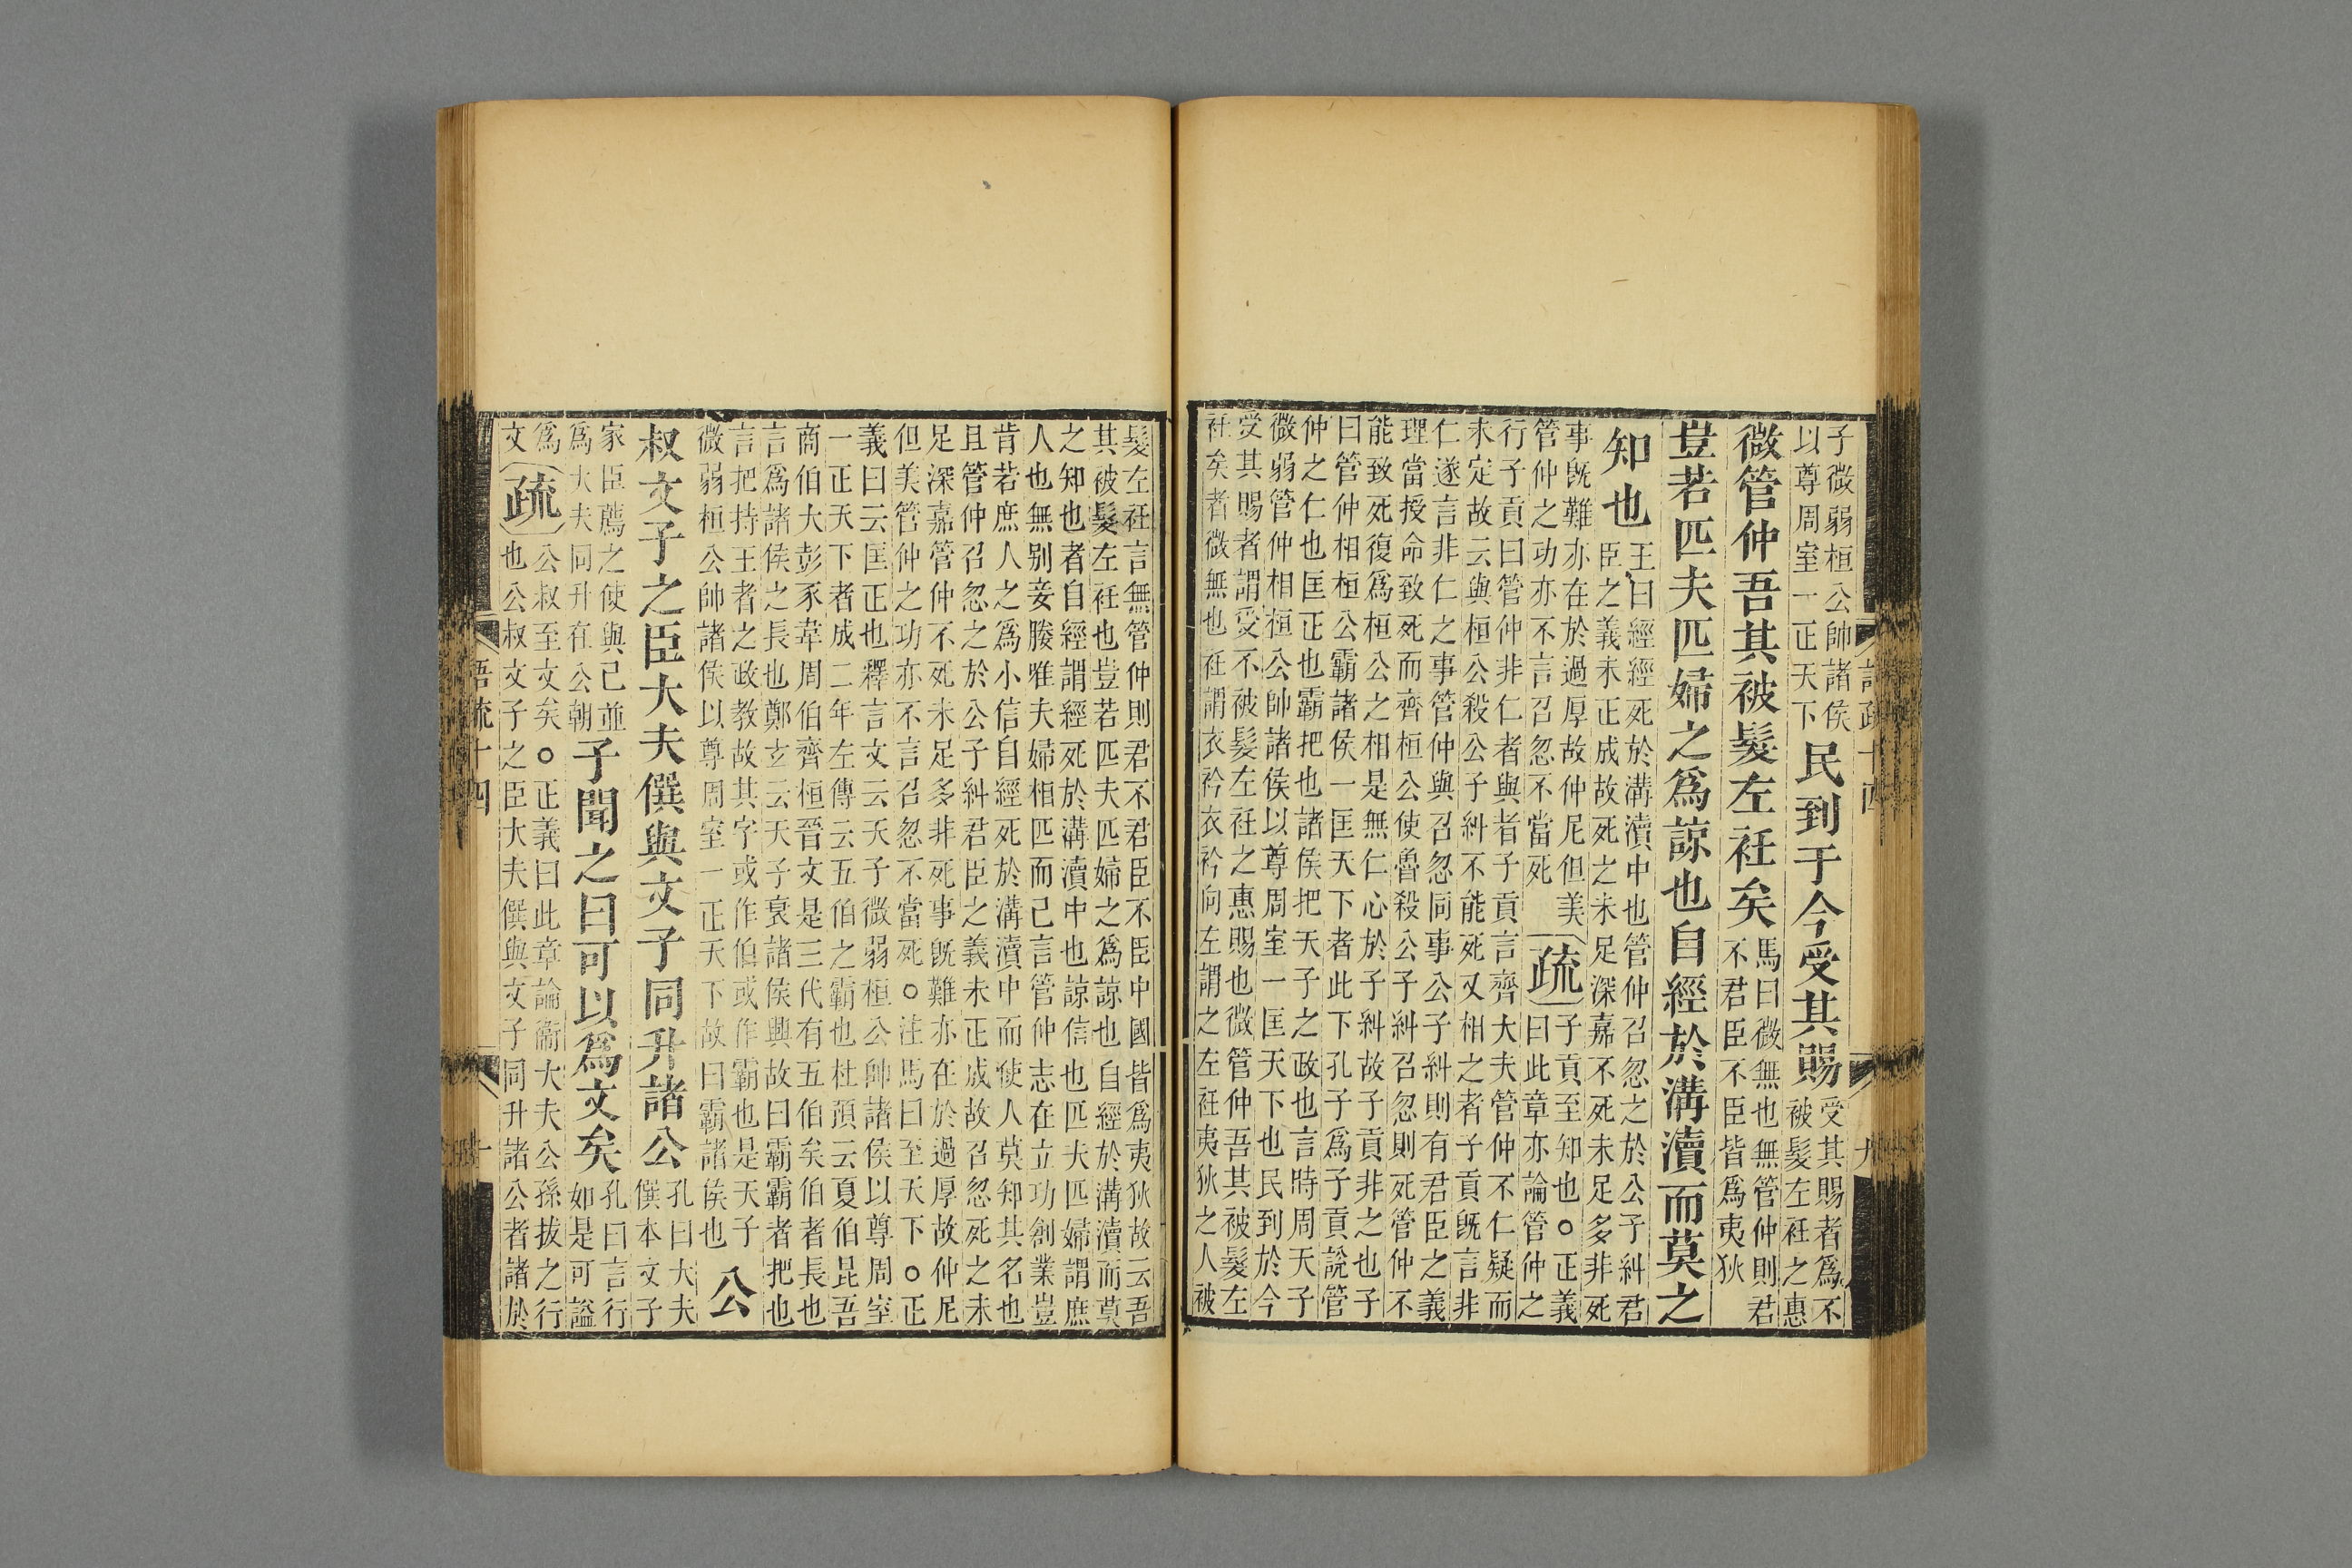 子微弱桓公帥諸侯
以尊周室一正天下
民到于今受其賜
受其賜者爲不
被髮左衽之惠
微管仲吾其被髮左衽矣
馬曰微無也無管仲則君
不君臣不臣皆爲夷狄
豈若匹夫匹婦之爲諒也自經於溝瀆而莫之
知也
王曰經經死於溝瀆中也管仲召忽之於公子糾君
臣之義未正成故死之未足深嘉不死未足多非死
事旣難亦在於過厚故仲尼但美
管仲之功亦不言召忽不當死
疏
子貢至知也○正義
曰此章亦論管仲之
行子貢曰管仲非仁者與者子貢言齊大夫管仲不仁疑而
未定故云與桓公殺公子糾不能死又相之者子貢旣言非
仁遂言非仁之事管仲與召忽同事公子糾則有君臣之義
理當授命致死而齊桓公使魯殺公子糾召忽則死管仲不
能致死復爲桓公之相是無仁心於子糾故子貢非之也子
曰管仲相桓公霸諸侯一匡天下者此下孔子爲子貢說管
仲之仁也匡正也霸把也諸侯把天子之政也言時周天子
微弱管仲相桓公帥諸侯以尊周室一匡天下也民到於今
受其賜者謂受不被髮左衽之惠賜也微管仲吾其被髮左
衽矣者微無也衽謂衣衿衣衿向左謂之左衽夷狄之人被
髮左衽言無管仲則君不君臣不臣中國皆爲夷狄故云吾
其被髮左衽也豈若匹夫匹婦之爲諒也自經於溝瀆而莫
之知也者自經謂經死於溝瀆中也諒信也匹夫匹婦謂庶
人也無別妾媵唯夫婦相匹而已言管仲志在立功創業豈
肯若庶人之爲小信自經死於溝瀆中而使人莫知其名也
且管仲召忽之於公子糾君臣之義未正成故召忽死之未
足深嘉管仲不死未足多非死事旣難亦在於過厚故仲尼
但美管仲之功亦不言召忽不當死○注馬曰至天下○正
義曰云匡正也釋言文云天子微弱桓公帥諸侯以尊周室
一正天下者成二年左傳云五伯之霸也杜預云夏伯昆吾
商伯大彭豕韋周伯齊桓晉文是三代有五伯矣伯者長也
言爲諸侯之長也鄭玄云天子衰諸侯興故曰霸霸者把也
言把持王者之政教故其字或作伯或作霸也是天子
微弱桓公帥諸侯以尊周室一正天下故曰霸諸侯也
公
叔文子之臣大夫僎與文子同升諸公
孔曰大夫
僎本文子
家臣薦之使與己並
爲大夫同升在公朝
子聞之曰可以爲文矣
孔曰言行
如是可謚
爲
文
疏
公叔至文矣○正義曰此章論衞大夫公孫拔之行
也公叔文子之臣大夫僎與文子同升諸公者諸於
語疏十四